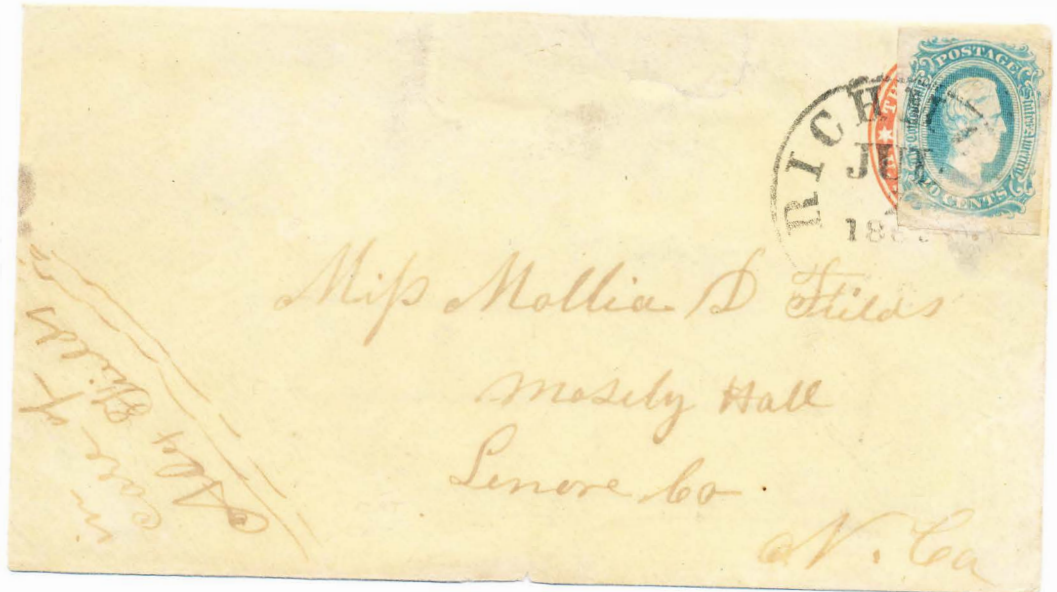 POSTAGE
CENTS
RICHM
JUL
186
Miss Mollia D Fields
Mosely Hall
Lenore Co
N. Ca
in
Care of